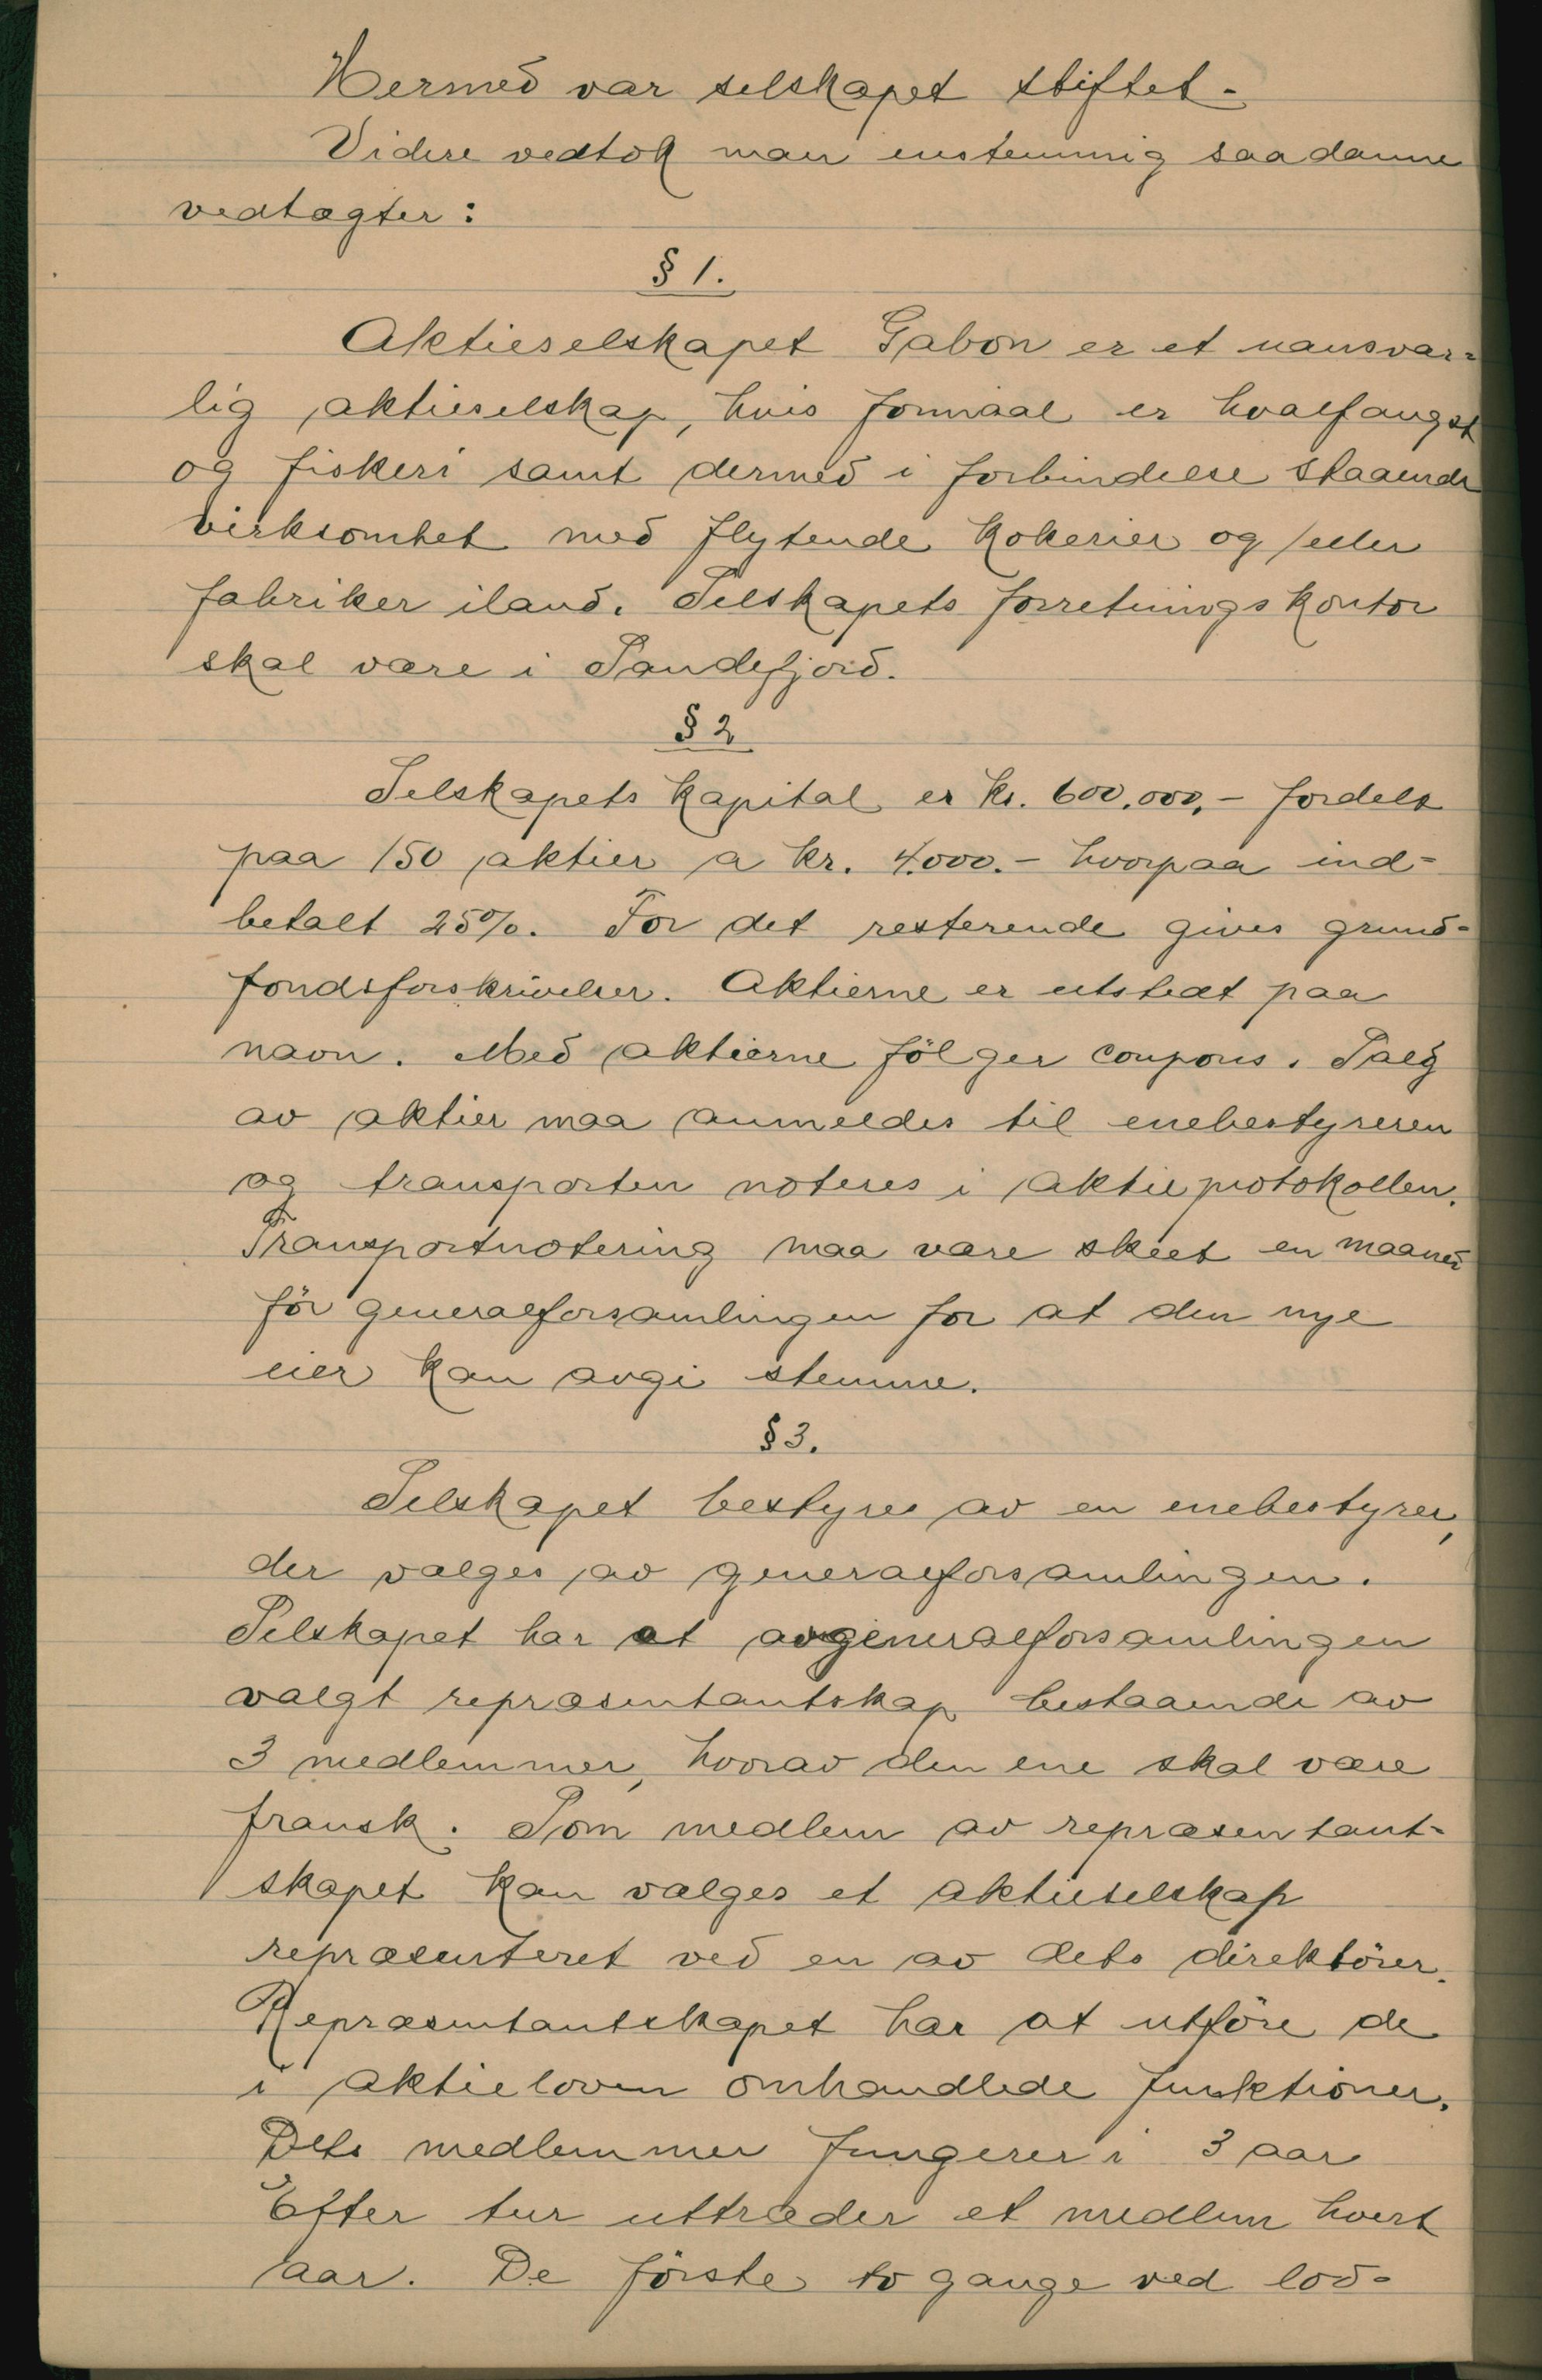 Hermed var selskapet stiftet.
Videre vedtok man enstemmig saadanne
vedtægter:
§ 1.
Aktieselskapet Gabon er et uansvar=
lig aktieselskap, hvis formaal er hvalfangst
og fiskeri samt dermed i forbindelse staaende
virksomhet med flytende kokerier og/eller
fabriker iland. Selskapets forretningskontor
skal være i Sandefjord.
§ 2
Selskapets kapital er kr. 600.000,- fordelt
paa 150 aktier a kr. 4.000.- hvorpaa ind-
betalt 25%. For det resterende gives grund-
fondsforskrivelser. Aktierne er utstedt paa
navn. Med aktierne följer coupons. Salg
av aktier maa anmeldes til enebestyreren
og transporten noteres i aktieprotokollen.
Transportnotering maa være skeet en maaned
för generalforsamlingen for at den nye
eier kan avgi stemme.
§ 3.
Selskapet bestyres av en enebestyrer,
der vælges av generalforsamlingen.
Selskapet har et av generalforsamlingen
valgt repræsentantskap bestaaende av
3 medlemmer, hvorav den ene skal være
fransk. Som medlem av repræsentant-
skapet kan vælges et aktieselskap
repræsenteret ved en av dets direktörer.
Repræsentantskapet har at utföre de
i aktieloven omhandlede funktioner.
Dets medlemmer fungerer i 3 aar
Efter tur uttræder et medlem hvert
aar. De förste to gange ved lod-